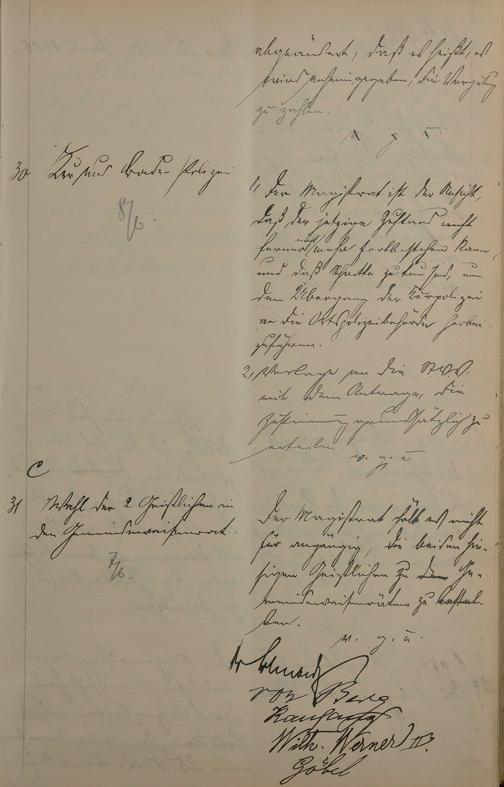 abgeändert, daß es heißt, es
wird anheimgegeben, die Vergütung
zu zahlen.
v. g. u.
30 Kur und Bade-Polizei
8/6.
1, Der Magistrat ist der Ansicht,
daß der jetzige Zustand nicht
ferner mehr fortbestehen kann,
und daß Schritte zu tun sind, um
den Übergang der Kurpolizei
an die Ortspolizeibehörde herbei-
zuführen.
2, Vorlage an die St.V.V.
mit dem Antrage, die
Zustimmung grundsätzlich zu
erteilen.
v. g. u.
C
31 Wahl der 2 Geistlichen in
den Gemeindewaisenrat.
7/6.
Der Magistrat hält es nicht
für angängig, die beiden hie-
sigen Geistlichen zu Ge-
meindewaisenräten zu
v. g. u.
von Berg
Wilh. Werner II.
Göbel